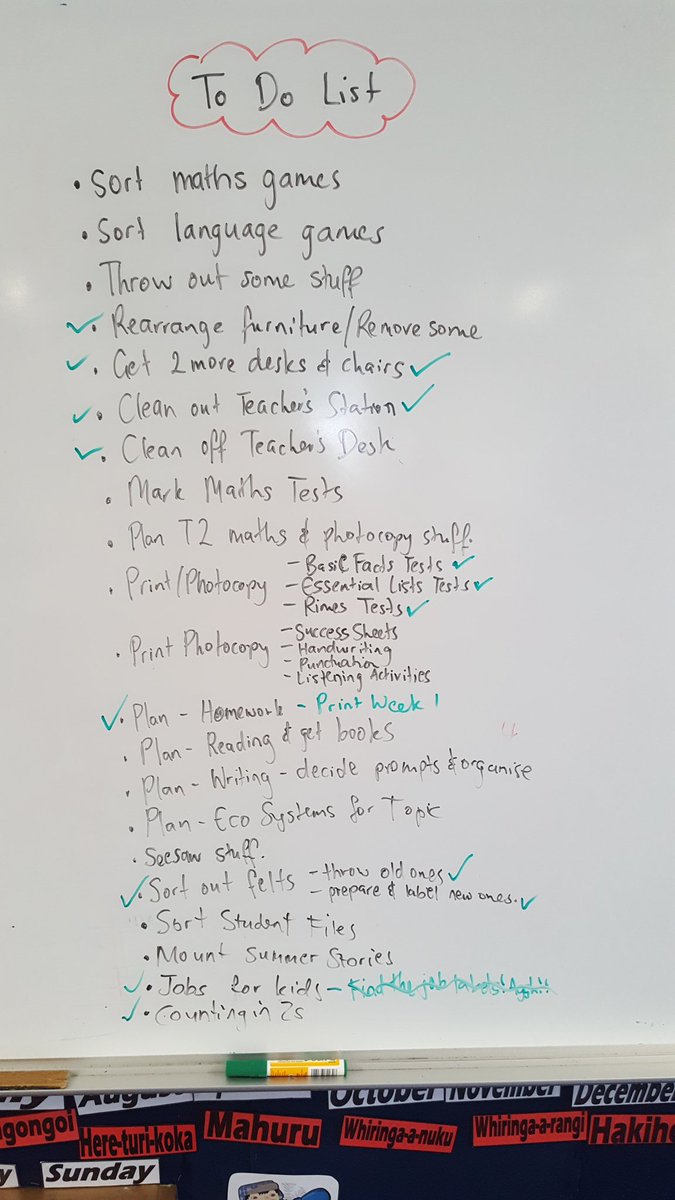 To Do List
• Sort maths games
• Sort language games
• Throw out some stuff
✓• Rearrange furniture/Remove some
✓• Get 2 more desks & chairs ✓
✓• Clean out Teacher's Station ✓
✓• Clean off Teacher's Desk
• Mark Maths Tests
• Plan T2 maths & photocopy stuff.
• Print/Photocopy
- Basic Facts Tests ✓
- Essential Lists Tests ✓
- Rimes Tests ✓
• Print Photocopy
- Success Sheets
- Handwriting
- Punctuation
- Listening Activities
✓• Plan - Homework - Print Week 1
• Plan - Reading & get books
• Plan - Writing - decide prompts & organise
• Plan - Eco Systems for Topic
• Seesaw stuff.
✓• Sort out felts
- throw old ones ✓
- prepare & label new ones. ✓
• Sort Student Files
• Mount Summer Stories
✓• Jobs for kids - Find the job labels!
✓• Counting in 2s
October November December
Here-turi-koka Mahuru Whiringa-a-nuku Whiringa-a-rangi
Sunday